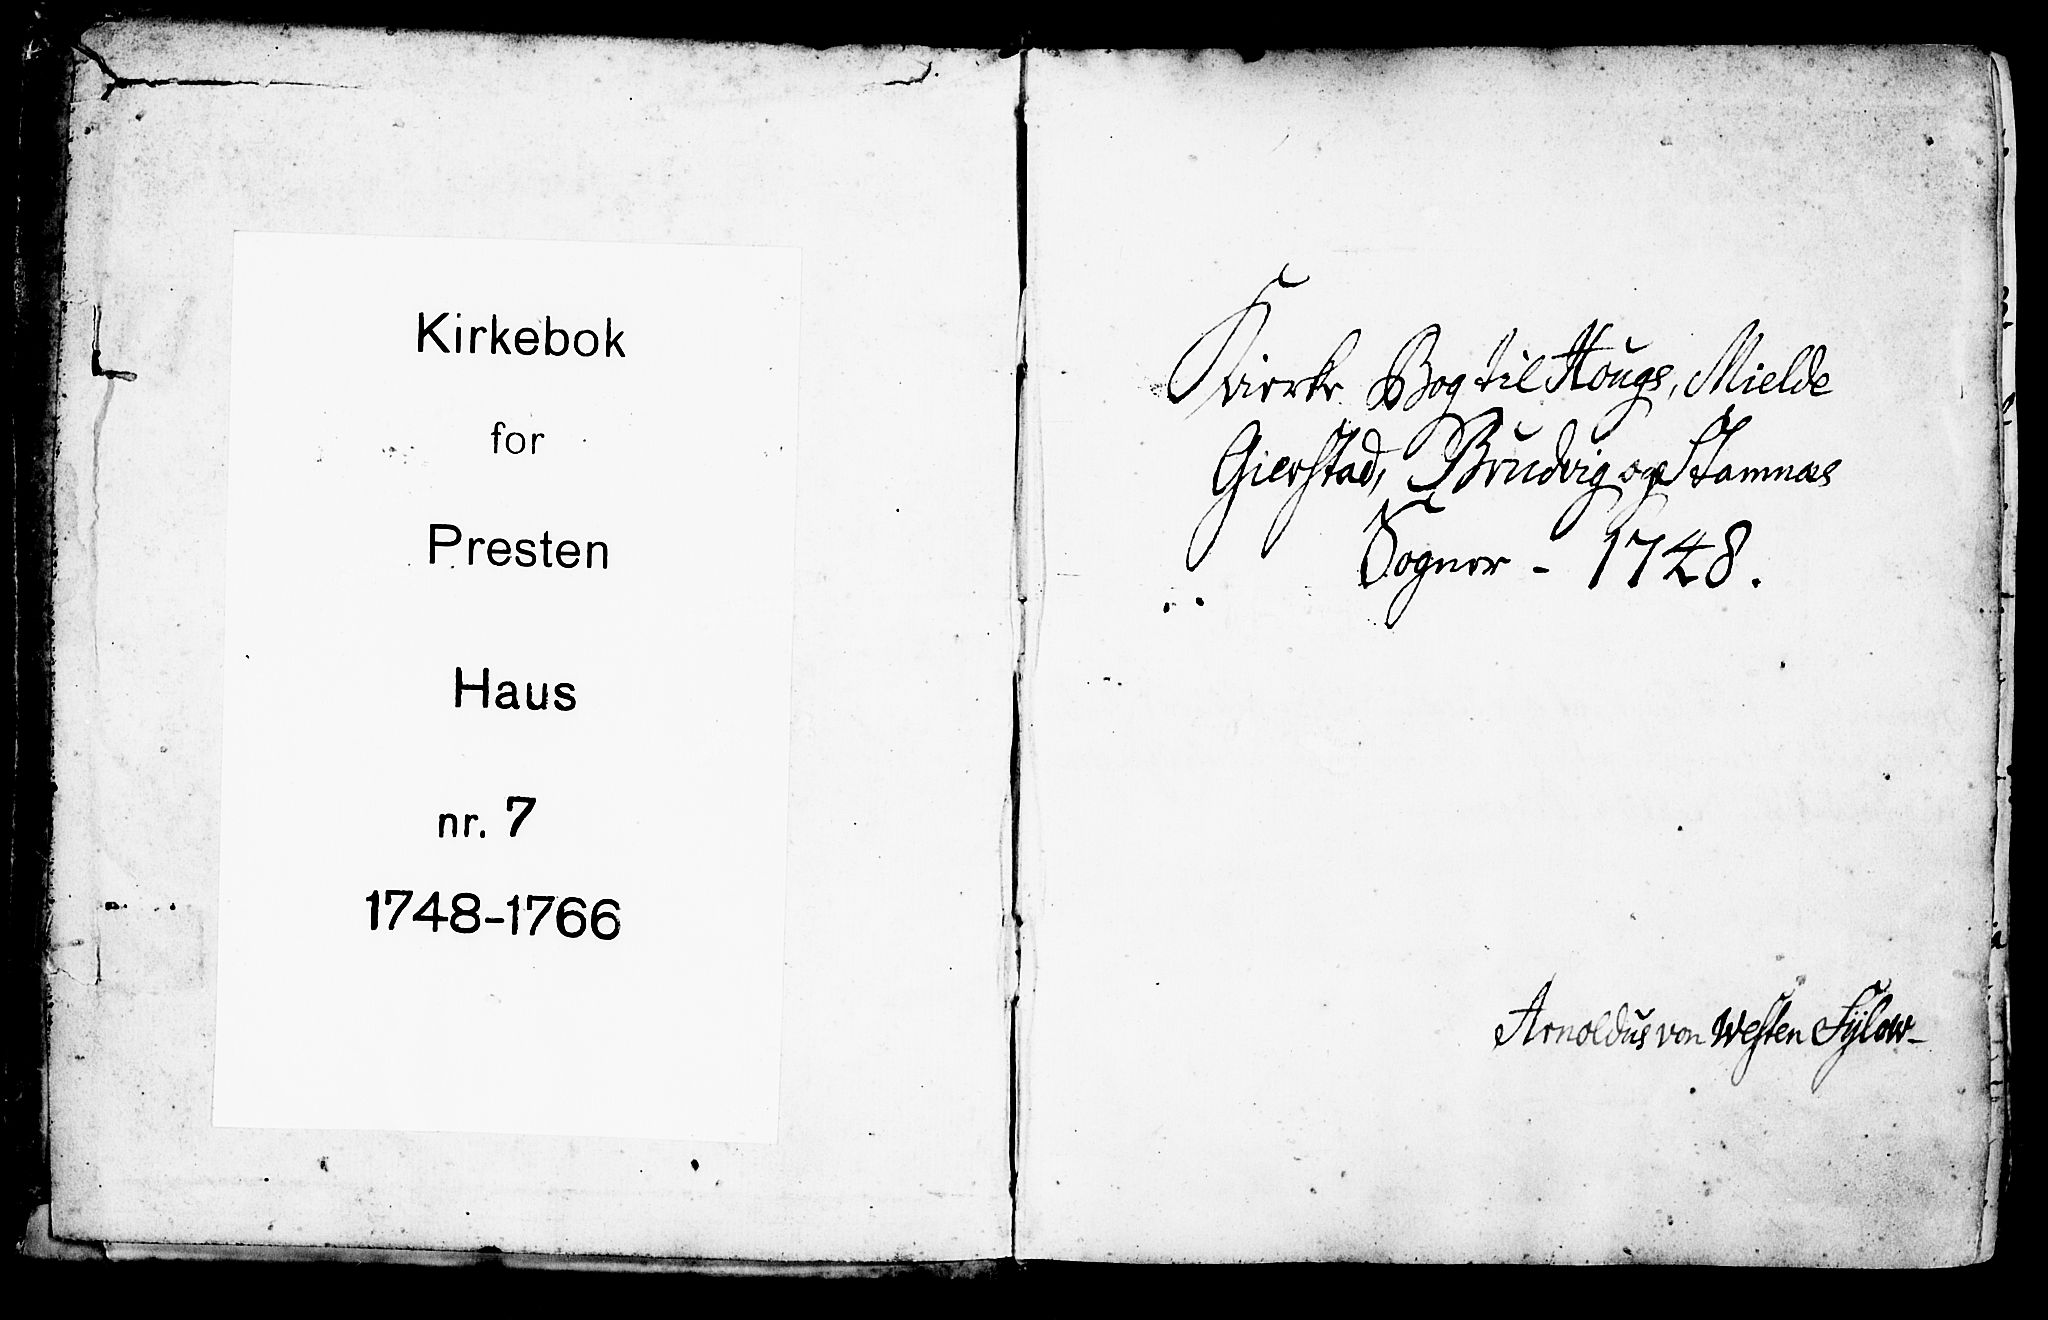 Kirkebok
for
Presten
Haus
nr. 7
1748-1766
Kierke Bog til Hougs, Mielde
Gierstad, Brudvig og Stamnæs
Sogner - 1748.
Arnoldus von Westen Sÿlow